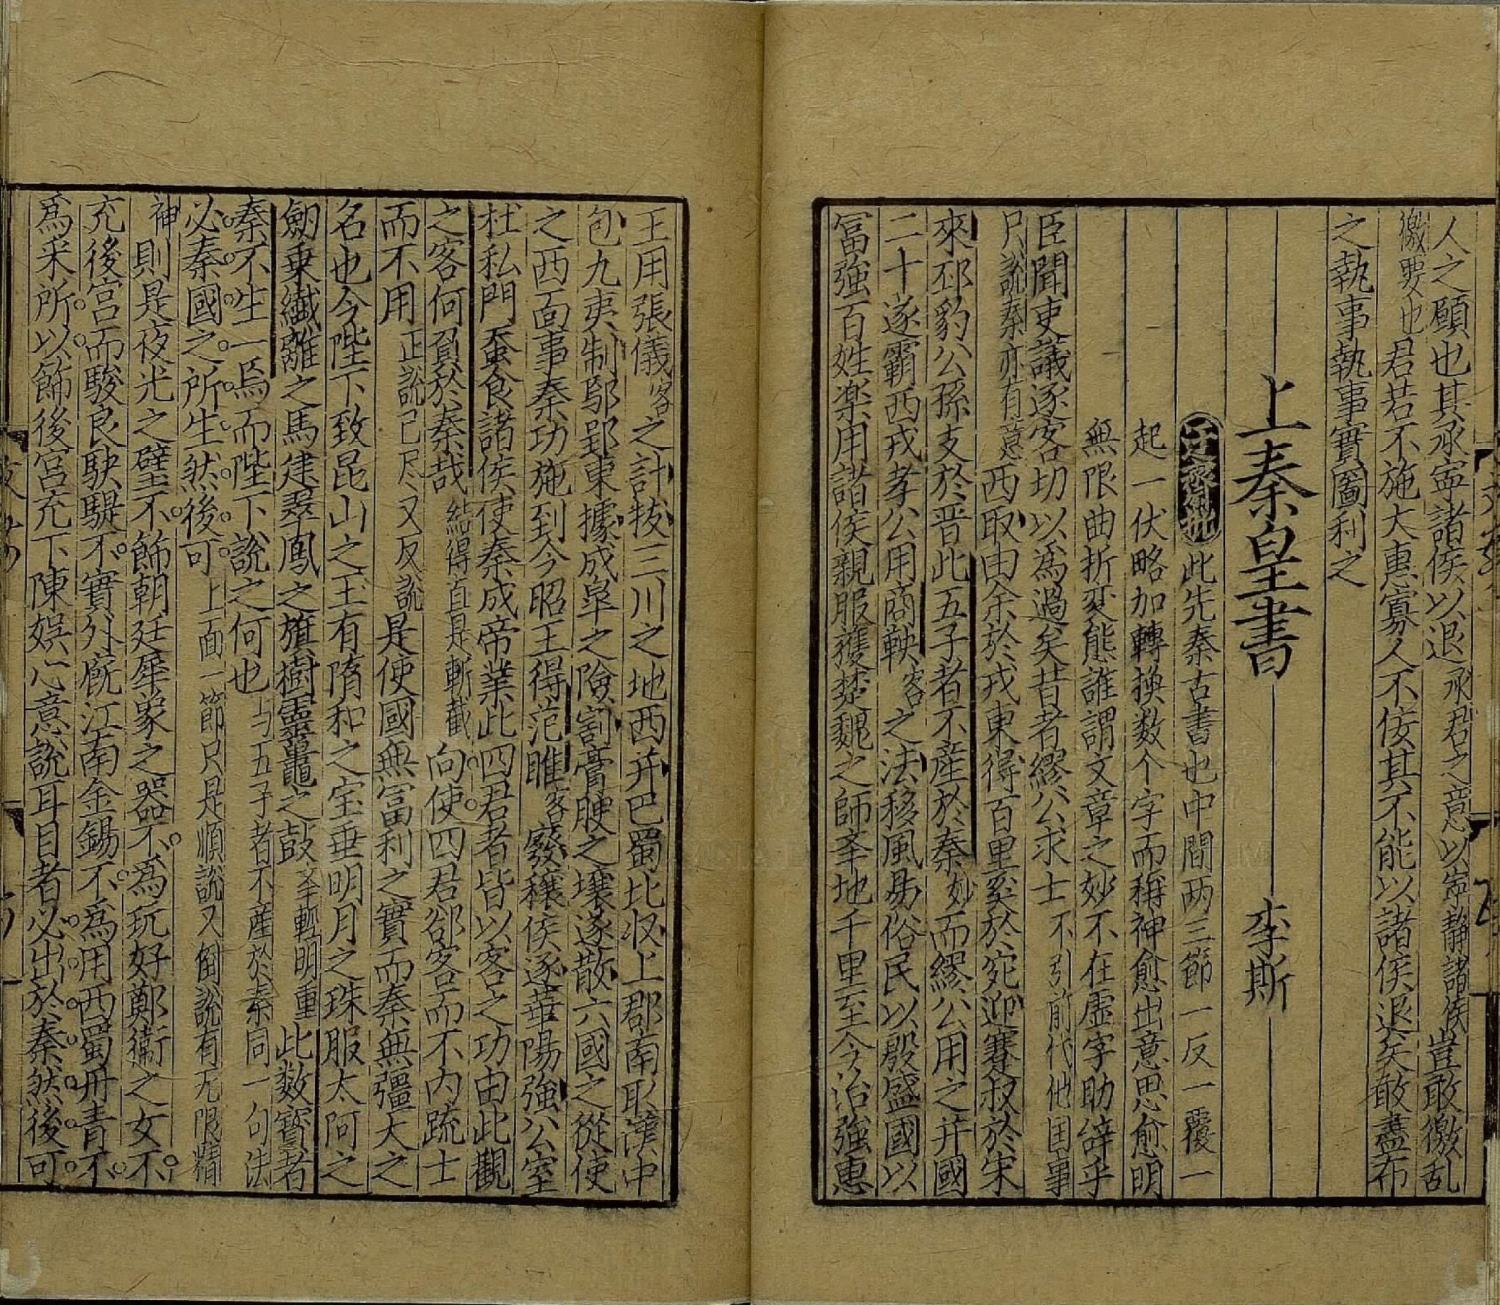 人之願也其承寧諸侯以退承君之意以寧靜諸侯豈敢徼乱
徼要也君若不施大惠寡人不佞其不能以諸侯退矣敢盡布
之執事執事實圖利之
上秦皇書 李斯
迂齋批此先秦古書也中間两三節一反一覆一
起一伏略加轉換数个字而精神愈出意思愈明
無限曲折変態誰謂文章之妙不在虚字助辝乎
臣聞吏議逐客切以為過矣昔者繆公求士不引前代他国事
只說秦亦有意西取由余於戎東得百里奚於宛迎蹇叔於宋
來邳豹公孫支於晉此五子者不産於秦妙而繆公用之并國
二十遂霸西戎孝公用商鞅客之法移風易俗民以殷盛國以
冨強百姓楽用諸侯親服獲楚魏之師㪯地千里至今治強惠
王用張儀客之計㧞三川之地西并巴蜀北収上郡南取漢中
包九夷制鄢郢東據成皐之險割膏腴之壤遂散六國之從使
之西面事秦功施到今昭王得范雎客廢穰侯逐華陽強公室
杜私門蚕食諸侯使秦成帝業此四君者皆以客之功由此觀
之客何負於秦哉結得直是斬截向使四君郤客而不内疏士
而不用正說已尽又反說是使國無冨利之實而秦無彊大之
名也今陛下致昆山之玉有隋和之宝垂明月之珠服太阿之
劒乗纖離之馬建翠鳳之旗樹靈鼉之鼓㪯輕明重此数寳者
秦不生一焉而陛下說之何也与五子者不產於秦同一句法
必秦國之所生然後可上面一節只是順說又倒說有无限精
神則是夜光之璧不飾朝廷犀象之器不為玩好鄭衞之女不
充後宫而駿良駃騠不實外厩江南金錫不為用西蜀丹青不
爲采所以飾後宮充下陳娯心意說耳目者必出於秦然後可